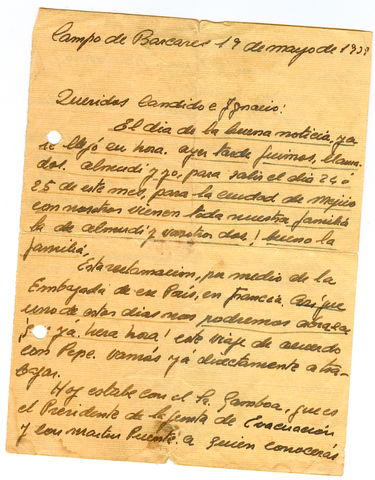 Campo de Barcares 19 de mayo de 1939
Queridos Candido e Ignacio:
El dia de la buena noticia, ya
se llejó en hora. ayer tarde fuimos, llama
dos. almendi y yo, para salir el dia 24 ó
25 de este mes, para la ciudad de Mejico
con nosotros vienen toda nuestra familia
la de almendi y vosotros dos, ! bueno la
familia,
Esta reclamacion, por medio de la
Embajada de ese País, en Francia. Asi que
uno de estos dias nos podremos abraza
ya, hera hora! este viaje de acuerdo
con Pepe. vamos yá directamente a tra-
bajar.
Hoy estube con el Sr. Gamboa, que es
el Presidente de la Junta de Evacuación
y con Martin Puente. a quien conocerás